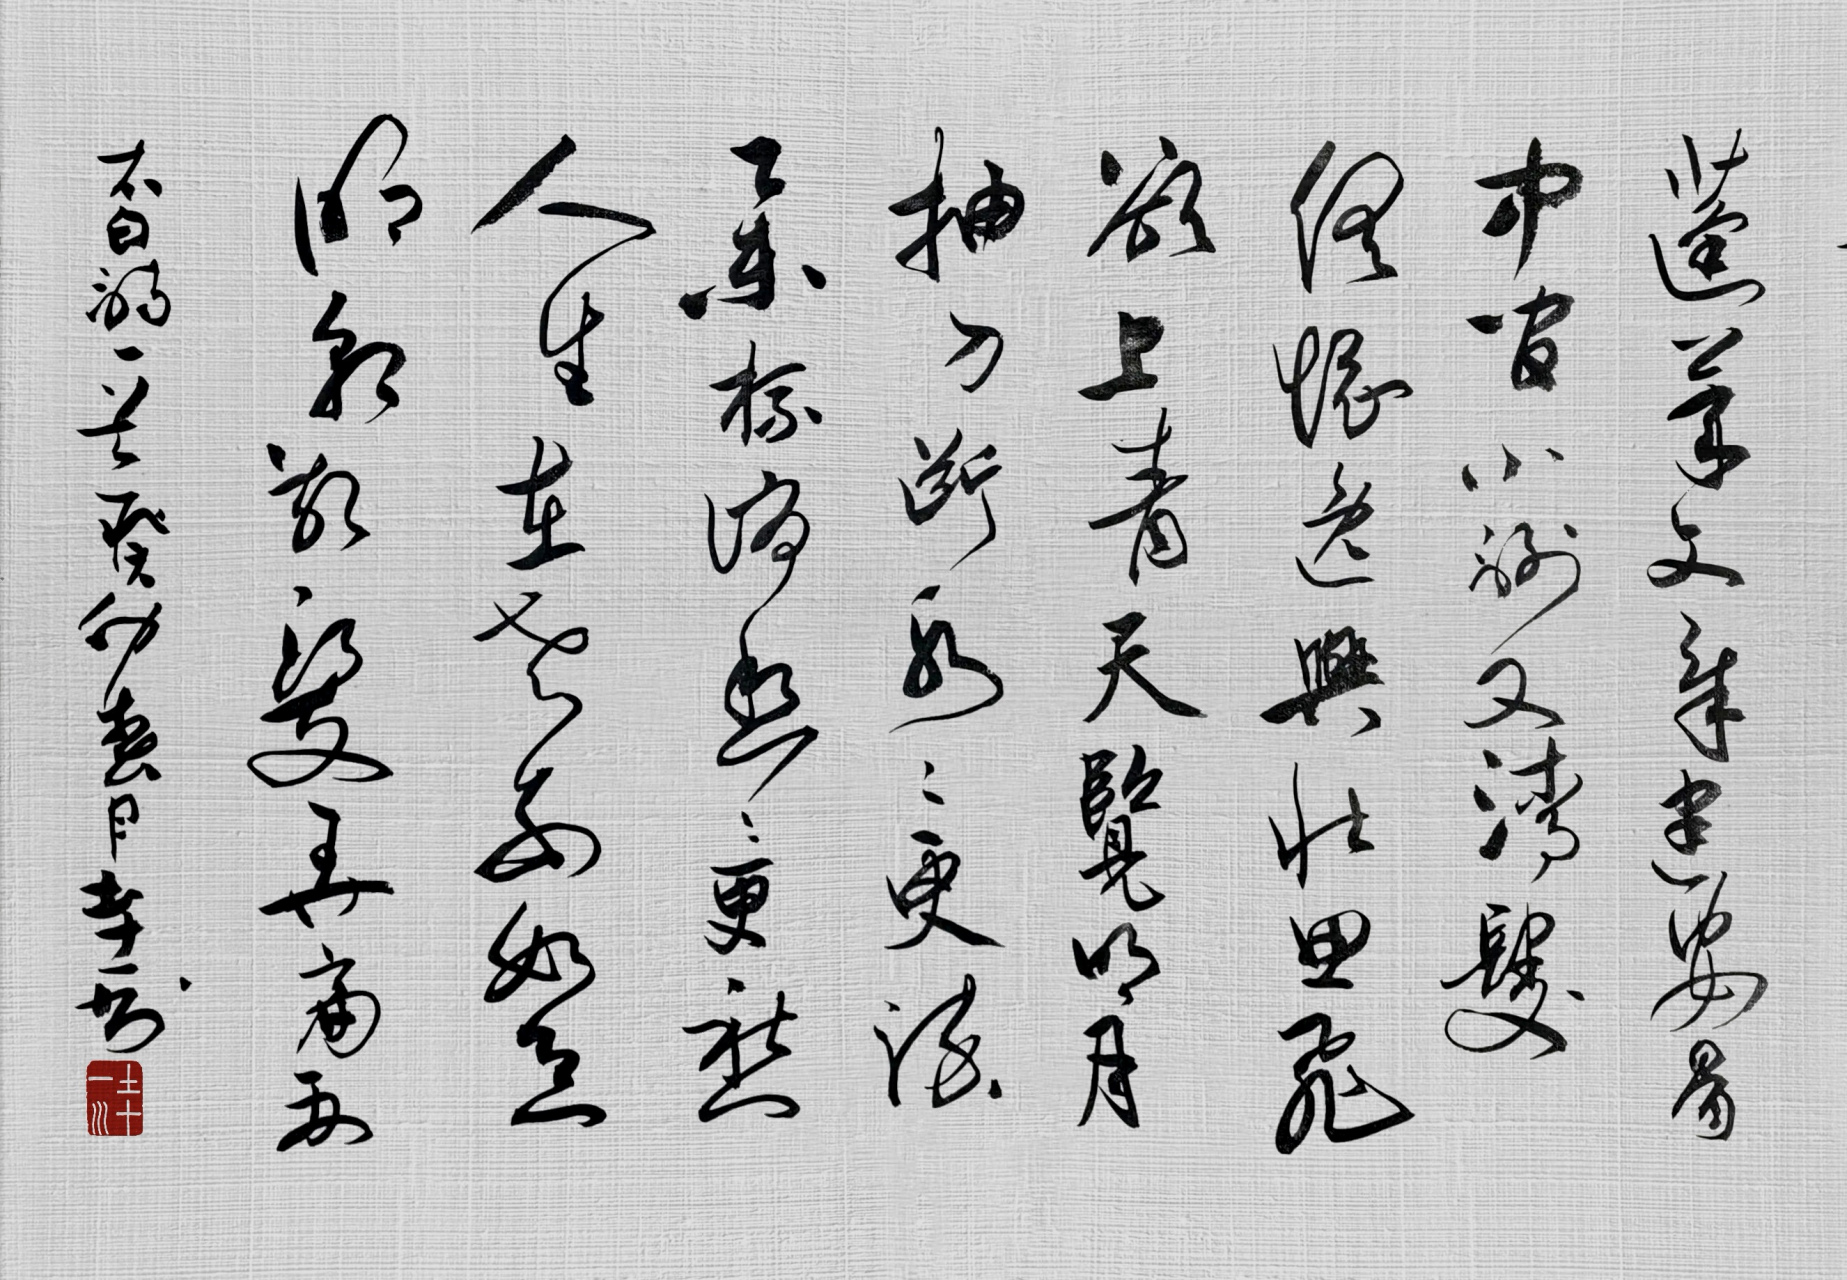 蓬萊文章建安骨
中間小謝又清髮
俱懷逸興壯思飛
欲上青天覽明月
抽刀斷水〻更流
舉杯銷愁〻更愁
人生在世不稱意
明朝散髮弄扁舟
李白詩一首癸卯春月